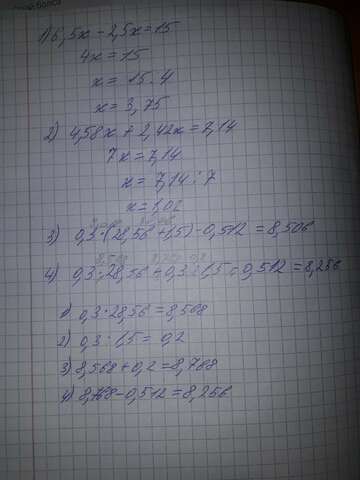 1) 6,5x - 2,5x = 15
4x = 15
x = 15 : 4
x = 3,75
2) 4,58x + 2,42x = 7,14
7x = 7,14
x = 7,14 : 7
x = 1,02
3) 0,3 · (28,56 + 1,5) - 0,512 = 8,506
4) 0,3 · 28,56 + 0,3 : 1,5 - 0,512 = 8,256
1) 0,3 · 28,56 = 8,568
2) 0,3 : 1,5 = 0,2
3) 8,568 + 0,2 = 8,768
4) 8,768 - 0,512 = 8,256